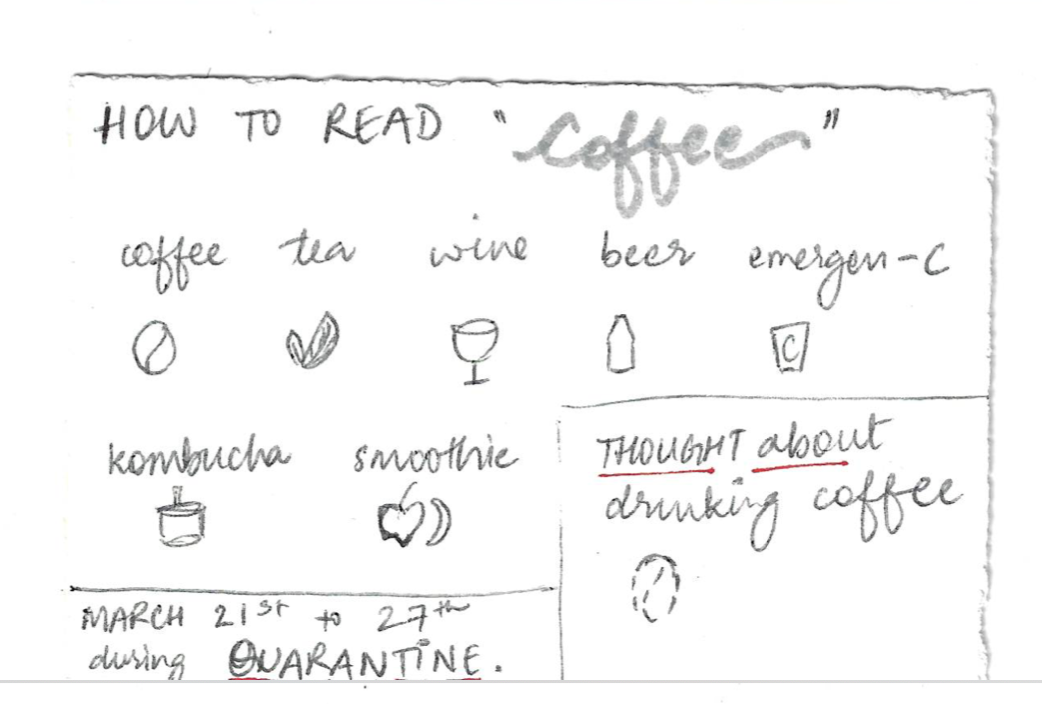 HOW TO READ "Coffee"
coffee tea wine beer emergen-C
C
kombucha smoothie
THOUGHT about
drinking coffee
MARCH 21st to 27th
during QUARANTINE.